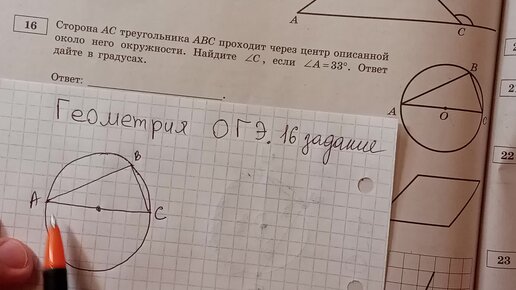 A
C
16
Сторона AC треугольника ABC проходит через центр описанной
около него окружности. Найдите ∠C, если ∠A = 33°. Ответ
дайте в градусах.
Ответ:
B
A
O
C
Геометрия ОГЭ. 16 задание
B
A
C
22
23